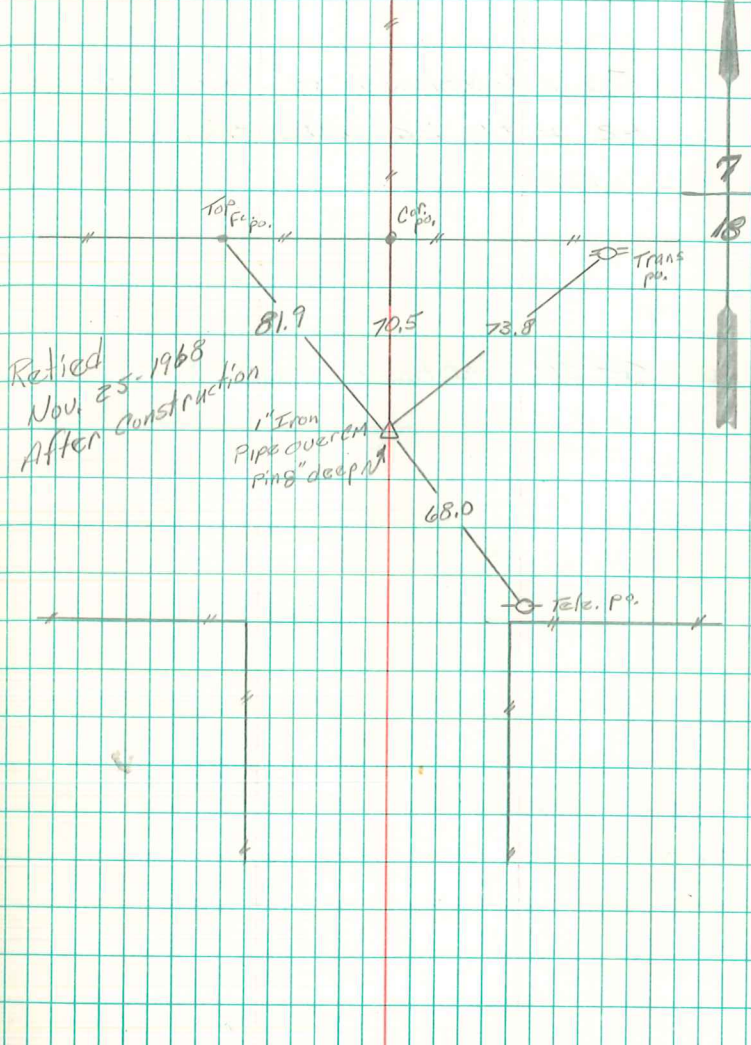 7
18
Top
Fc. po.
Cor.
po.
Trans
po.
81.9
70.5
73.8
Retied
Nov. 25-1968
After Construction
1" Iron
Pipe over CM
Pin 8" deep
68.0
Tele. po.